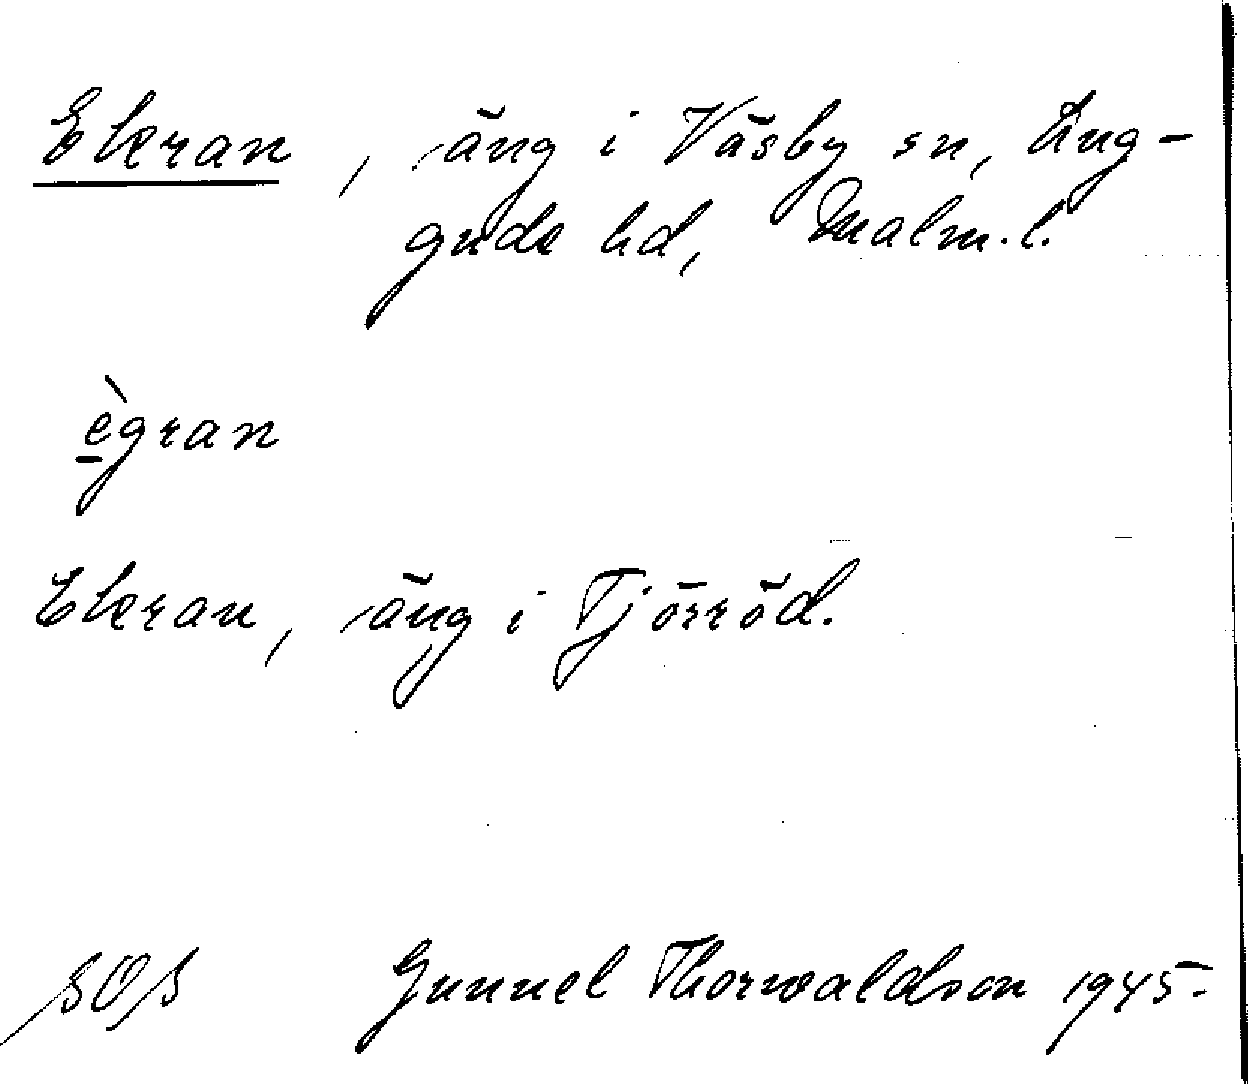 Ekran, äng i Väsby sn, Lug-
gude hd, Malm. l.
ègran
Ekran, äng i Tjörröd.
SOS Gunnel Thorwaldson 1945.